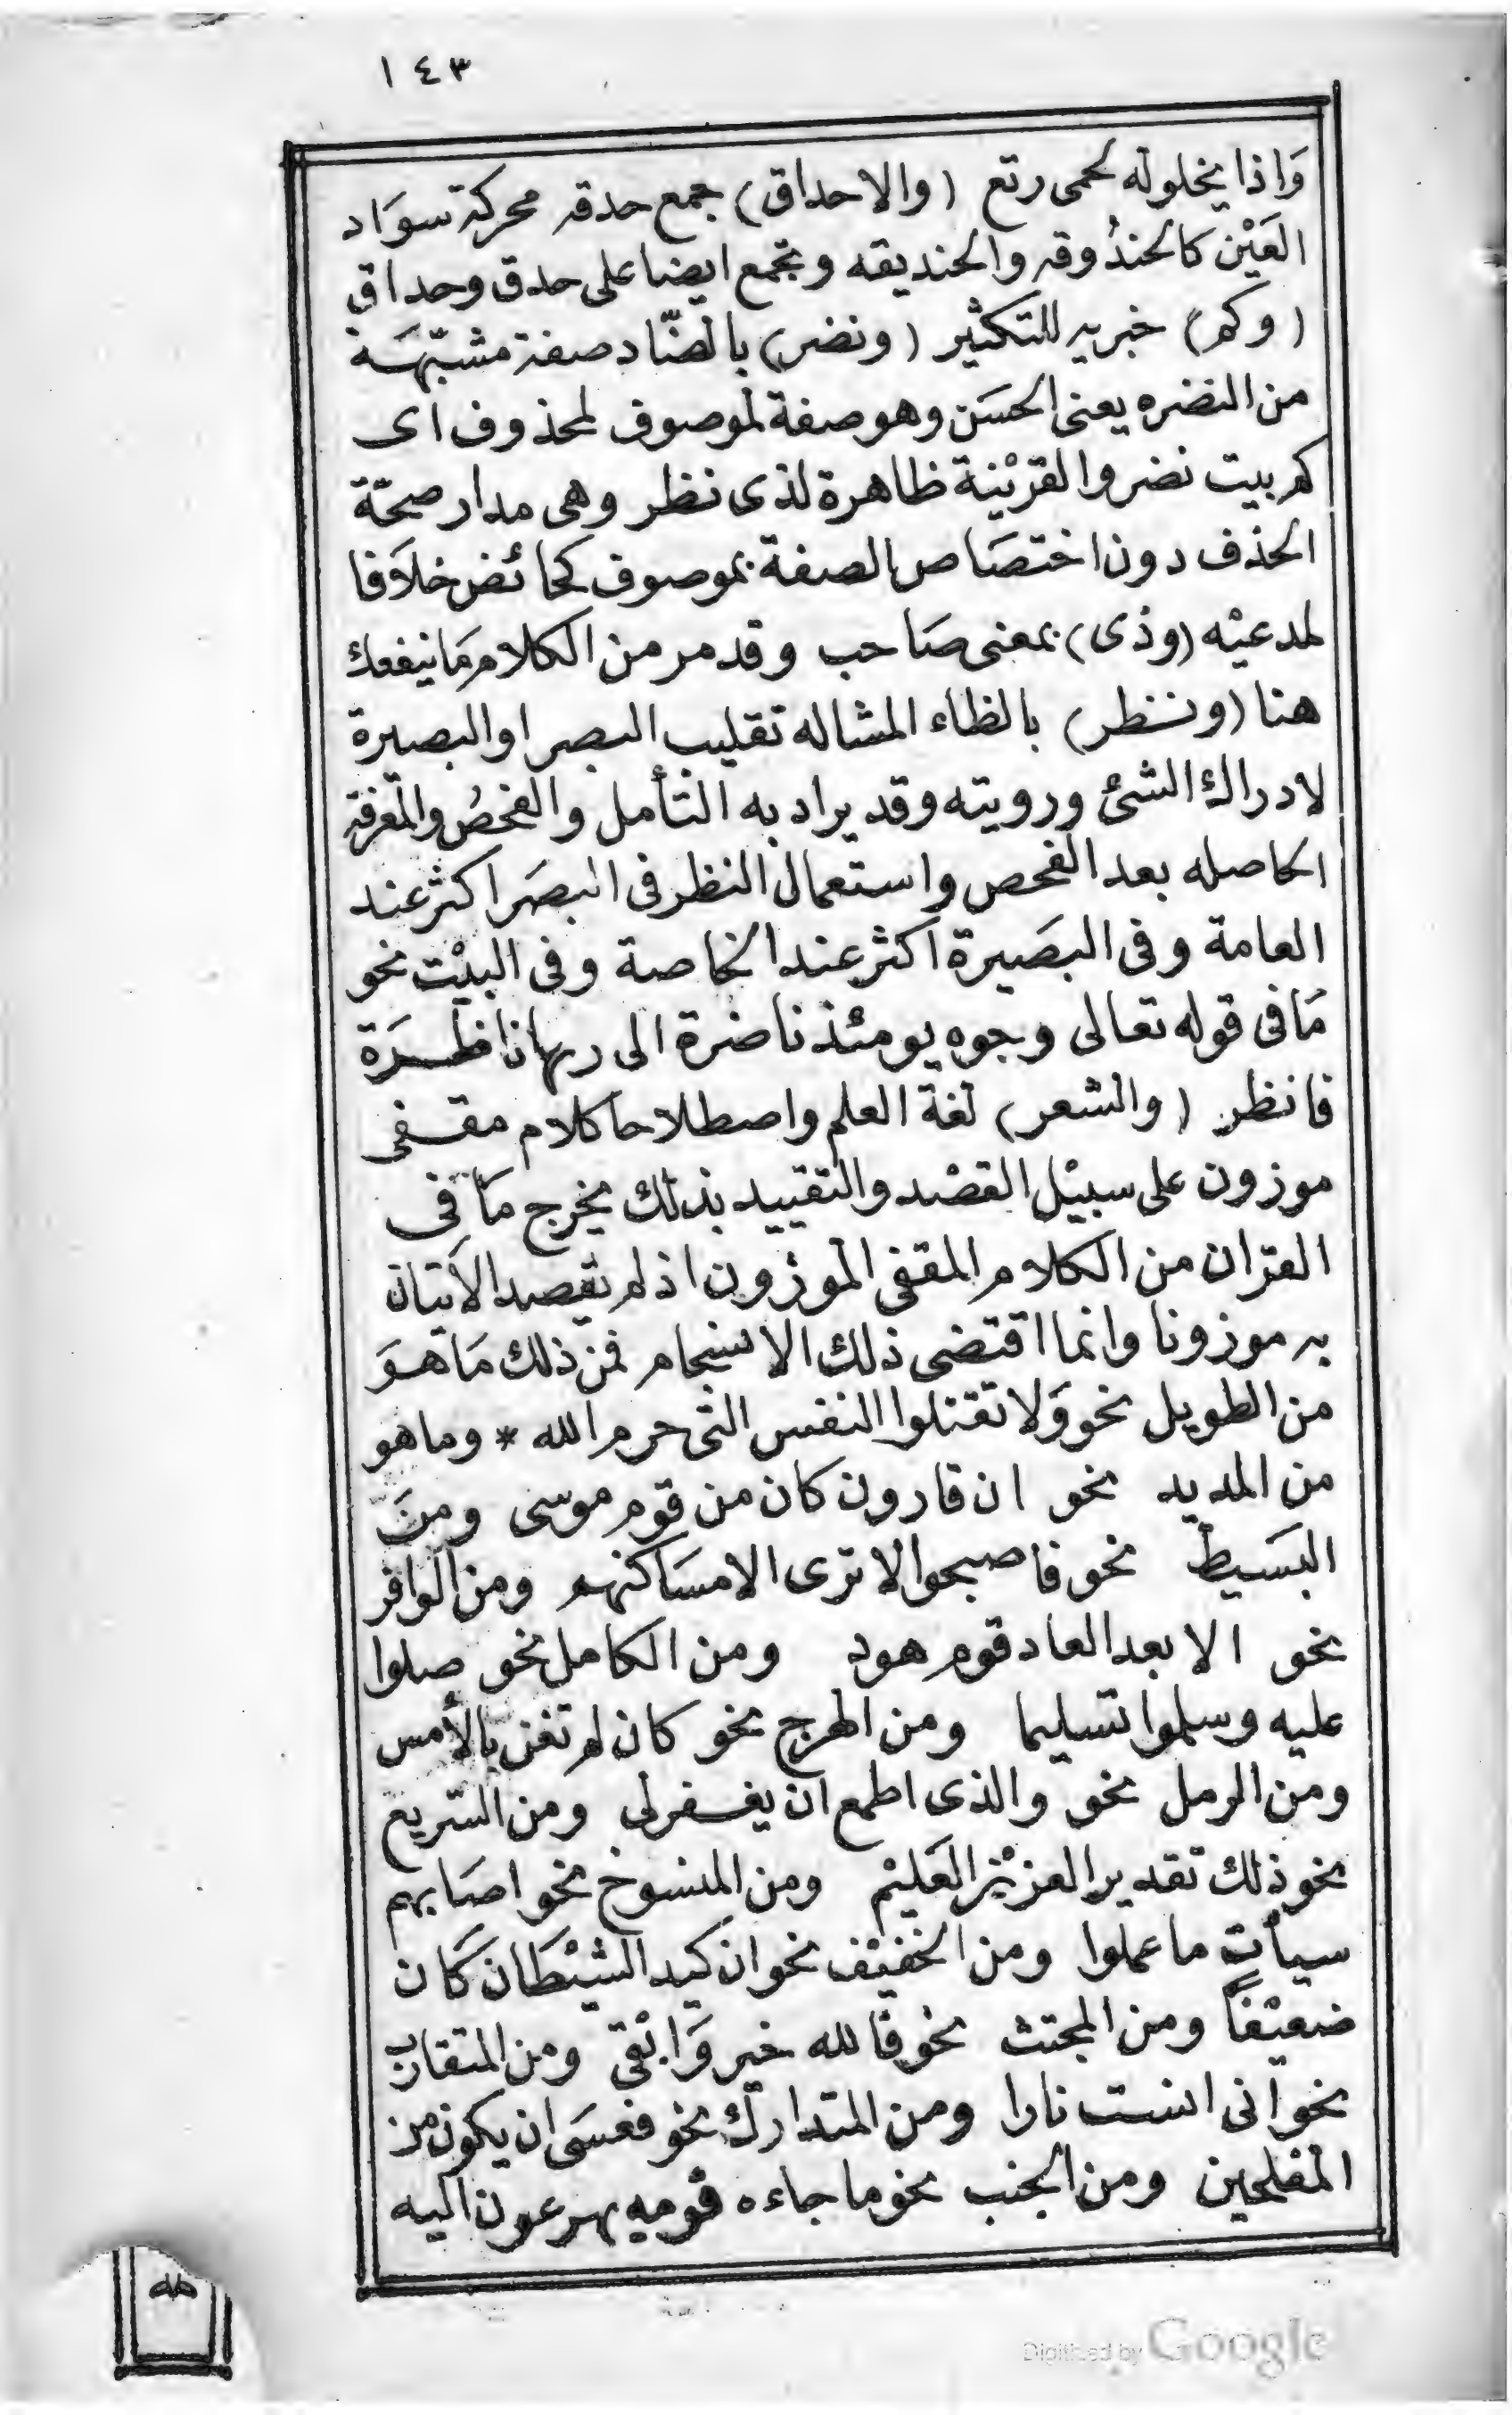 ١٤٣
وَاذا يخلوله لحمى رتع (والاحداق) جمع حدقه محركة سوَاد
العَيْن كالحندُوقه والحنديقه وتجمع ايضا على حدق وحداق
(وكم) خبريه للتكثير (ونضر) بالضّاد صفة مشبّهَة
من النضره يعنى الحسَن وهو صفة لموصوف لمحذوف اى
كم بيت نضر والقرْينة ظاهرة لذى نظر وهى مدار صحّة
الحذف دون اختصَاص الصفة بموصوف كحائض خلاَفا
لمدعيْه (وذى) بمعنى صَاحب وقد مر من الكلام مَا ينفعك
هنا (ونظر) بالظاء المشاله تقليب البصر او البصيرة
لادراك الشئ ورويته وقد يراد به التأمل والفحصُ والمَعرفة
الحاصله بعد الفحص واستعمال النظر فى البصَر اكثر عند
العامة وفى البصَيرة اكثر عند الخاصة وفى البيْت نحو
مَا فى قوله تعالى وجوه يومئذ ناضرة الى ربها ناظرَة
فانظر (والشعر) لغة العلم واصطلاحا كلام مقفى
موزون على سبيْل القصْد والتقييد بذلك يخرج مَا فى
القرّان من الكلام المقفى الموزون اذ لم يقصد الاَتيان
به موزونا وانما اقتضى ذلك الانسجام فمن ذلك مَا هوَ
من الطويل نحو وَلا تقتلوا النفس التى حرم الله * وما هو
من المديد نحو ان قارون كان من قوم موسى ومنَ
البَسَيط نحو فاصبحوا لا ترى الا مسَاكنهم ومن الوافر
نحو الا بعدا لعاد قوم هود ومن الكامل نحو صلوا
عليه وسلموا تسليما ومن الهزج نحو كان لم تغن بالأمس
ومن الرمل نحو والذى اطمع ان يغفر لى ومن السّريع
نحو ذلك تقدير العزيْز العَليْم ومن المنسوخ نحو اصَابهم
سيأت ما عملوا ومن الخفيْف نحو ان كيد الشيْطَان كَان
ضعيْفاً ومن المجتث نحو فَالله خير وَابْقى ومن المتقارب
نحو انى انست نارا ومن المتدارك نحو فعسَى ان يكون من
المفلحين ومن الجنب نحو ما جاءه قوميه يهرعون اليه
طه
Digitized by Google